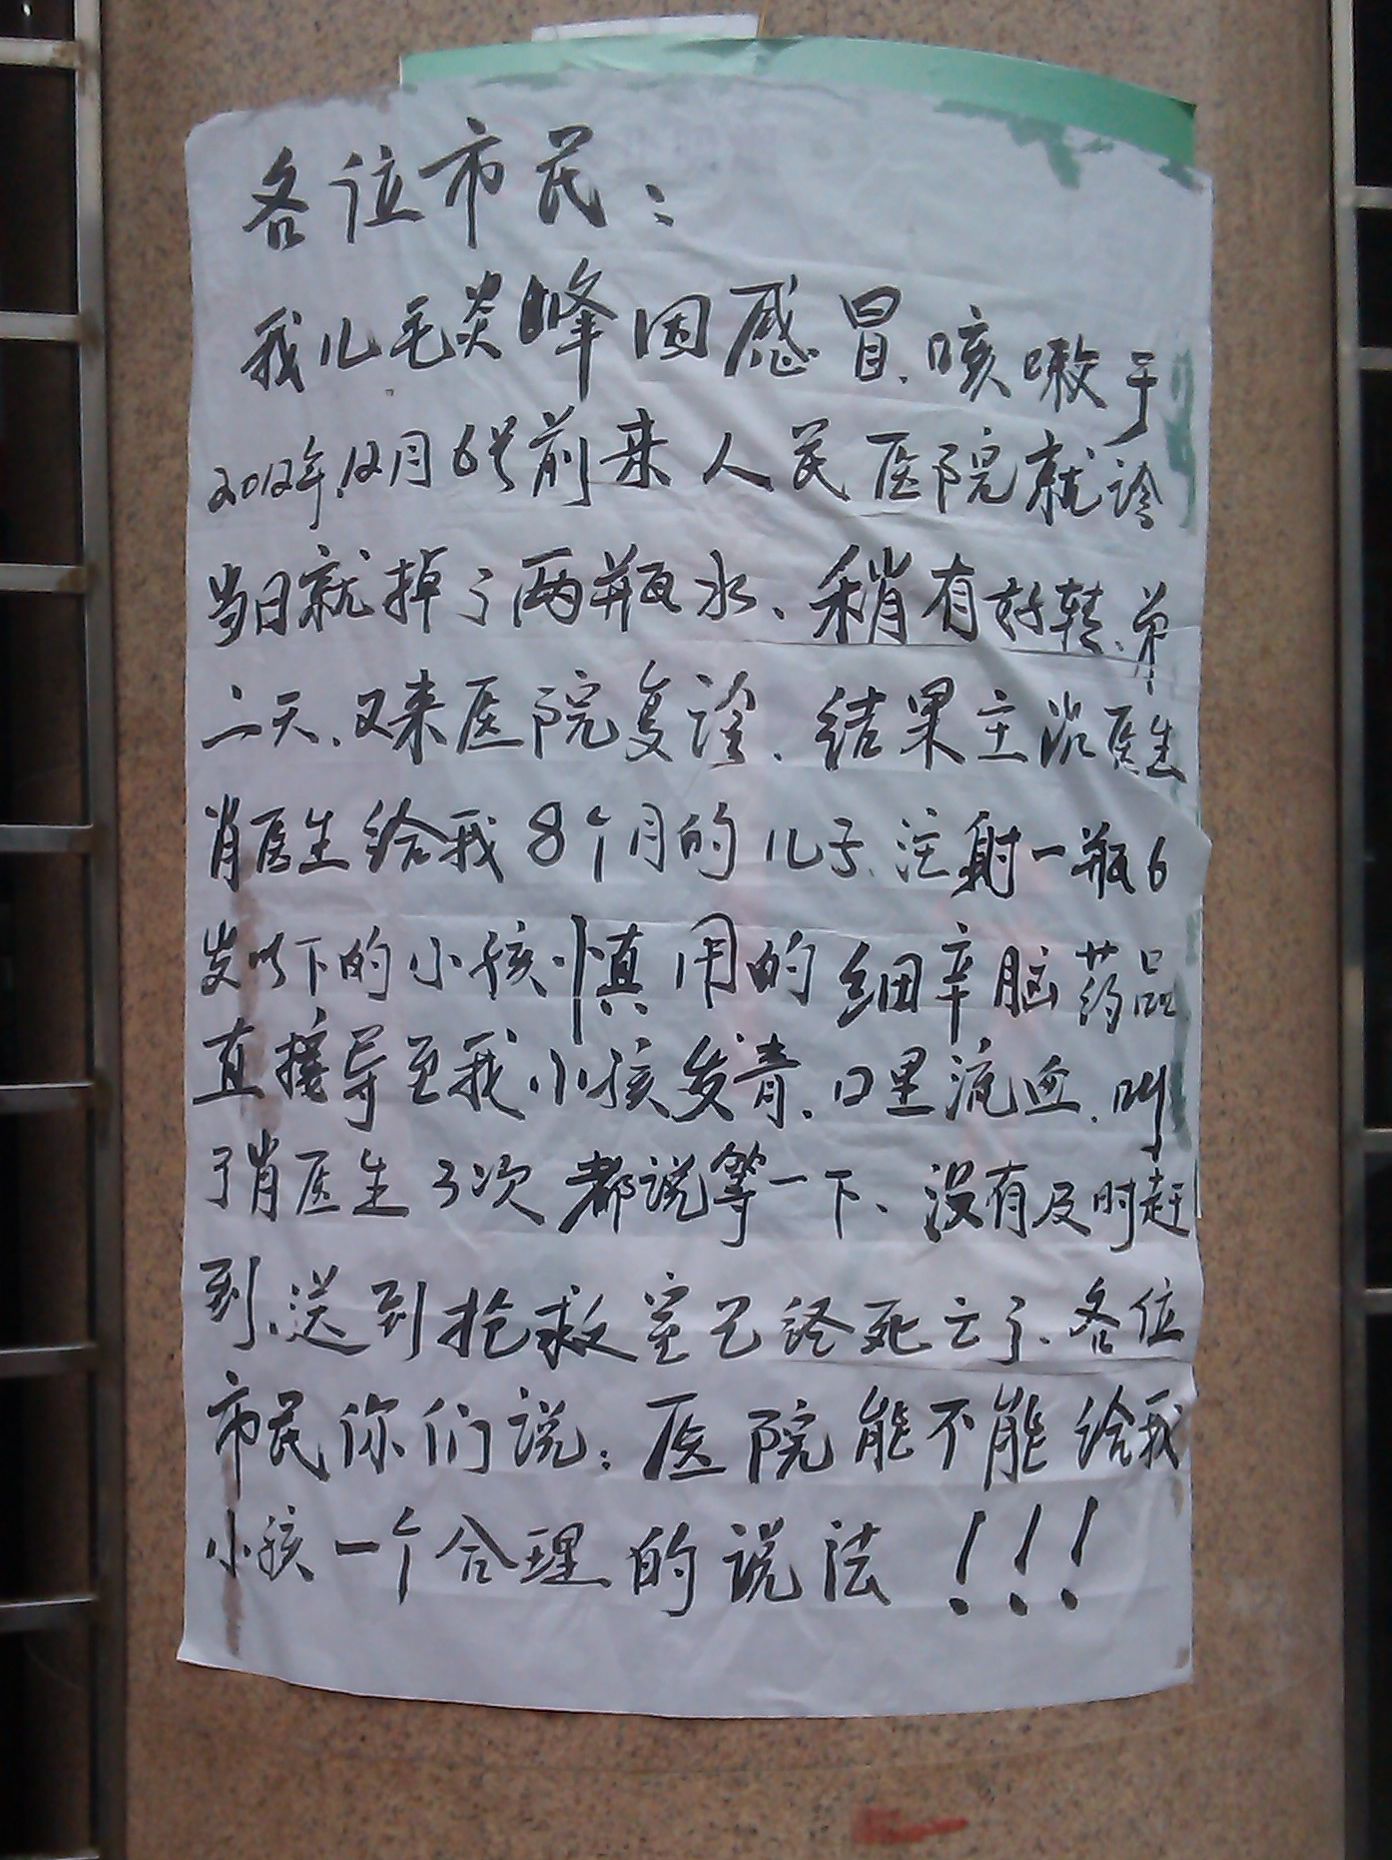 各位市民：
我儿毛炎峰因感冒、咳嗽于
2012年12月6号前来人民医院就诊
当日就掉了两瓶水、稍有好转、第
二天、又来医院复诊、结果主治医生
肖医生给我8个月的儿子、注射一瓶6
岁以下的小孩慎用的细辛脑药品
直接导至我小孩发青、口里流血、叫
了肖医生3次都说等一下、没有及时赶
到、送到抢救室已经死亡了、各位
市民你们说：医院能不能给我
小孩一个合理的说法！！！